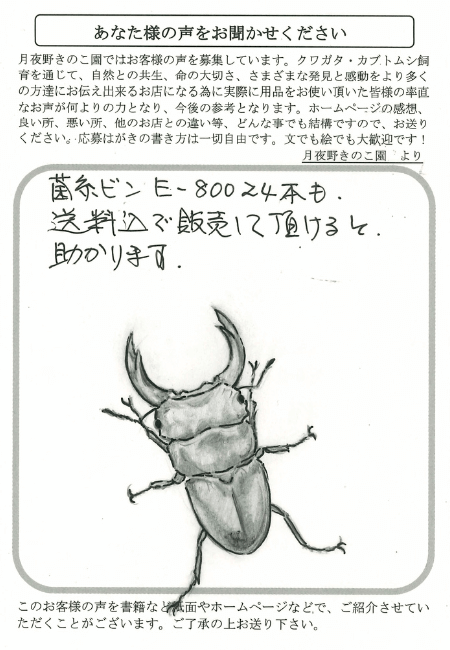 あなた様の声をお聞かせください
月夜野きのこ園ではお客様の声を募集しています。クワガタ・カブトムシ飼
育を通じて、自然との共生、命の大切さ、さまざまな発見と感動をより多く
の方達にお伝え出来るお店になる為に実際に用品をお使い頂いた皆様の率直
なお声が何よりの力となり、今後の参考となります。ホームページの感想、
良い所、悪い所、他のお店との違い等、どんな事でも結構ですので、お送り
ください。応募はがきの書き方は一切自由です。文でも絵でも大歓迎です！
月夜野きのこ園　より
菌糸ビン E-800 24本も、
送料込で販売して頂けると、
助かります。
このお客様の声を書籍など紙面やホームページなどで、ご紹介させてい
ただくことがございます。ご了承の上お送り下さい。